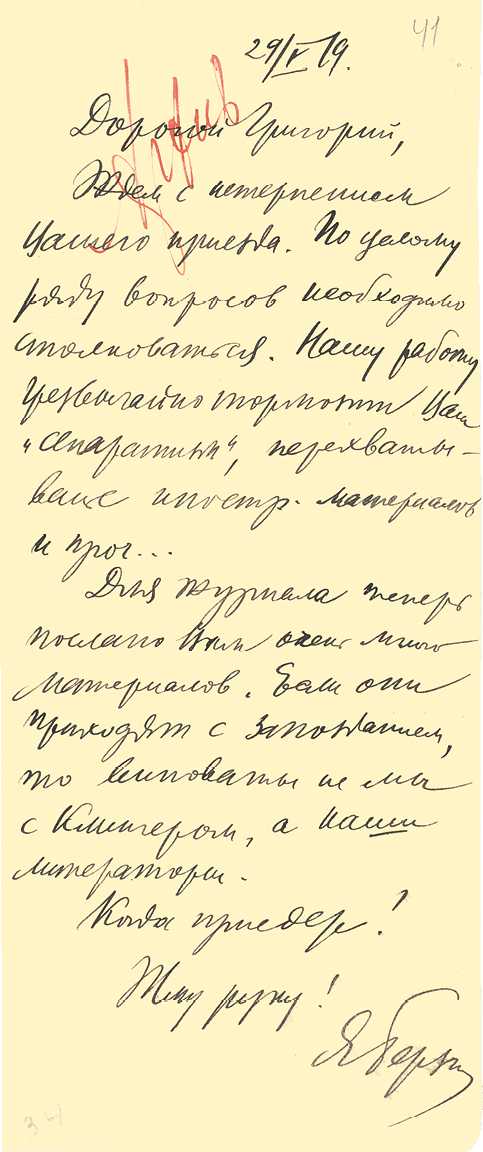 41
29/V 19.
Архив
Дорогой Григорий,
Ждем с нетерпением
Вашего приезда. По целому
ряду вопросов необходимо
столковаться. Нашу работу
чрезвычайно тормозит Ваш
"сепаратизм", перехваты-
вание иностр. материалов
и проч...
Для журнала теперь
послано Вам очень много
материалов. Если они
приходят с запозданием,
то виноваты не мы
с Клингером, а наши
литераторы.
Когда приедете!
Жму руку!
Я Берзин
34